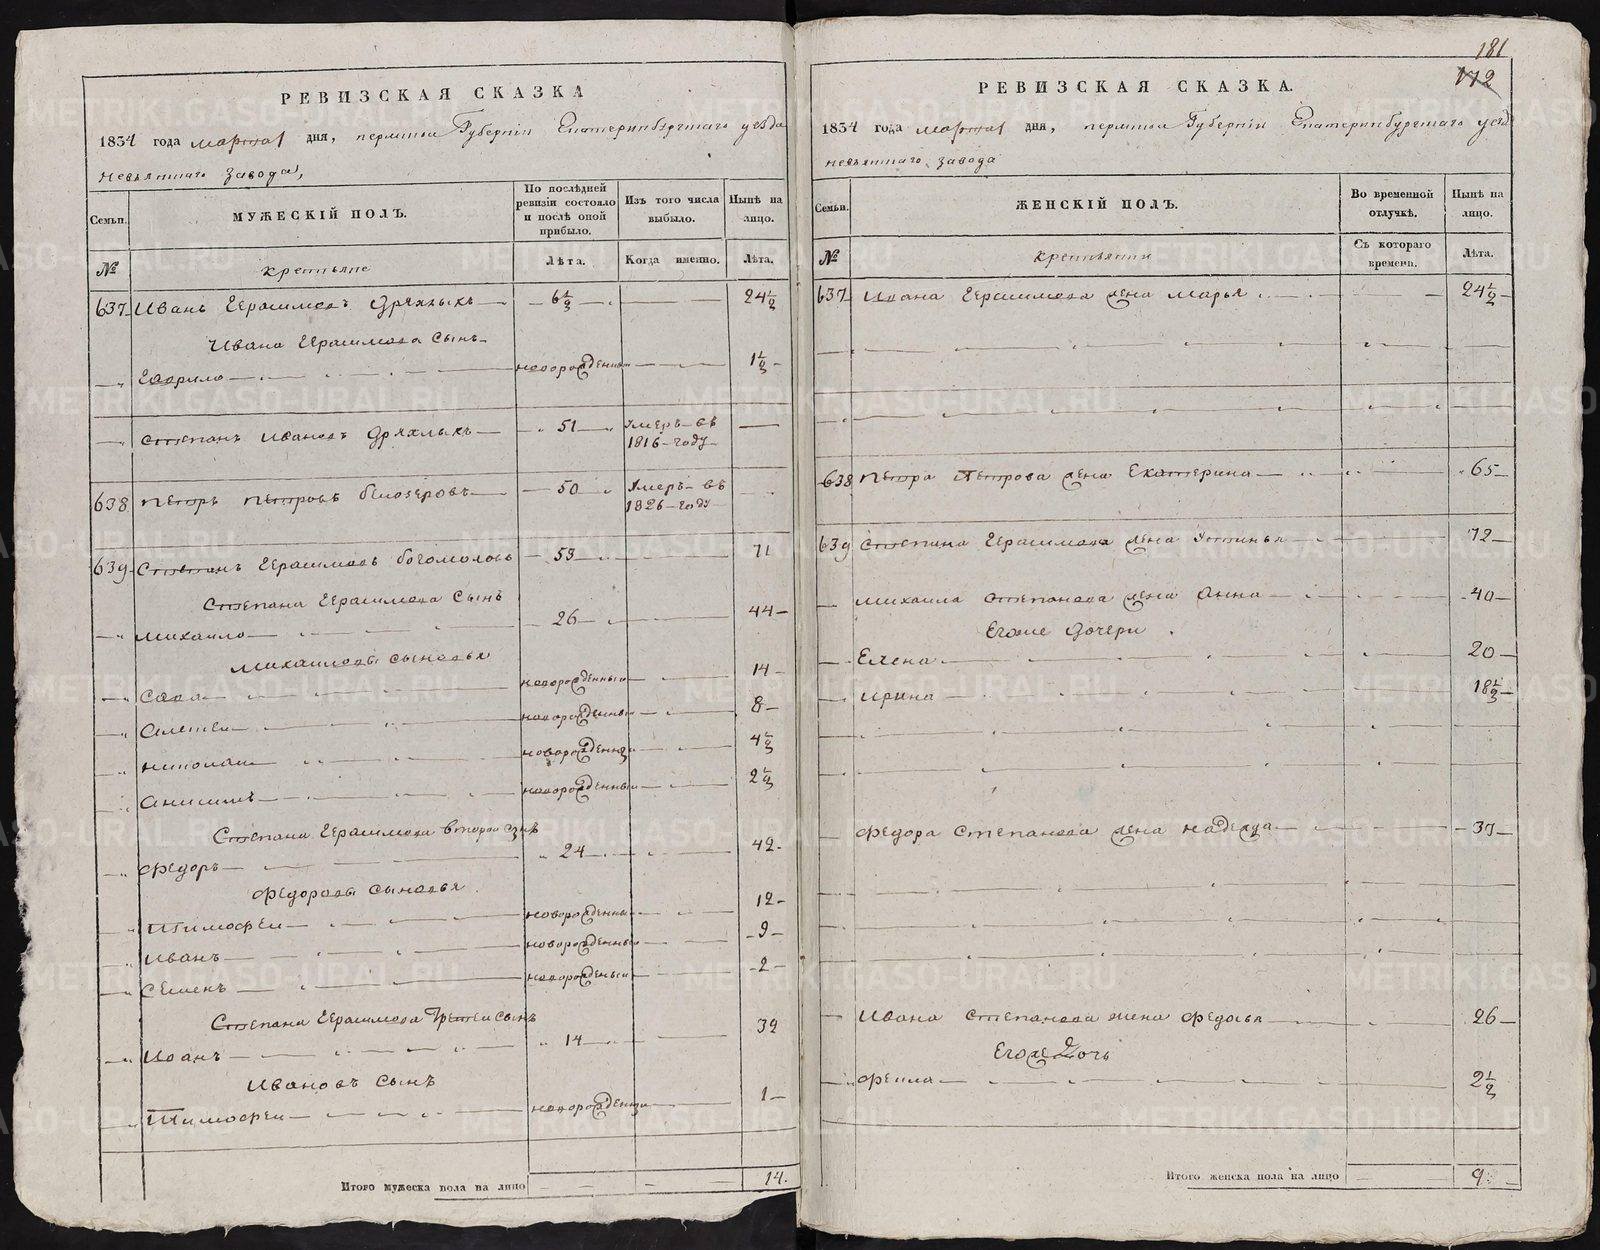 РЕВИЗСКАЯ СКАЗКА
1834 года марта 1 дня, пермской Губернiи Екатеринбургскаго уезда
невьянскаго завода,
Семьи. МУЖЕСКIЙ ПОЛЪ. По послѣдней ревизiи состояло и послѣ оной прибыло. Изъ того числа выбыло. Нынѣ на лицо.
№ крестьяне Лѣта. Когда именно. Лѣта.
637 Иванъ Герасимовъ Дряхлыхъ 6½ 24½
Ивана Герасимова сынъ
Гаврило новорожденный 1½
Степанъ Ивановъ Дряхлыхъ 51 Умеръ въ 1816 году
638 Петръ Петровъ Белозеровъ 50 Умеръ въ 1826 году
639 Степанъ Герасимовъ богомоловъ 53 71
Степана Герасимова сынъ
Михаило 26 44
Михаиловы сыновья
Сава новорожденный 14
Алексеи новорожденный 8
Николаи новорожденный 4½
Анисимъ новорожденный 2½
Степана Герасимова второй сынъ
Федоръ 24 42
Федоровы сыновья
Тимофеи новорожденный 12
Иванъ новорожденный 9
Семенъ новорожденный 2
Степана Герасимова Третеи сынъ
Иванъ 14 32
Ивановъ сынъ
Тимофеи новорожденный 1
Итого мужеска пола на лицо 14.
181
172
РЕВИЗСКАЯ СКАЗКА.
1834 года марта 1 дня, пермской Губернiи Екатеринбургскаго уезда
невьянскаго завода
Семьи. ЖЕНСКIЙ ПОЛЪ. Во временной отлучкѣ. Нынѣ на лицо.
№ крестьянки Съ котораго времени. Лѣта.
637 Ивана Герасимова жена Марья 24½
638 Петра Петрова жена Екатерина 65
639 Степана Герасимова жена Устинья 72
Михаила Степанова жена Анна 40
Егоже дочери
Елена 20
Ирина 18½
Федора Степанова жена Надежда 37
Ивана Степанова жена Федосья 26
Егоже Дочь
Фекла 2½
Итого женска пола на лицо 9.
METRIKI.GASO-URAL.RU